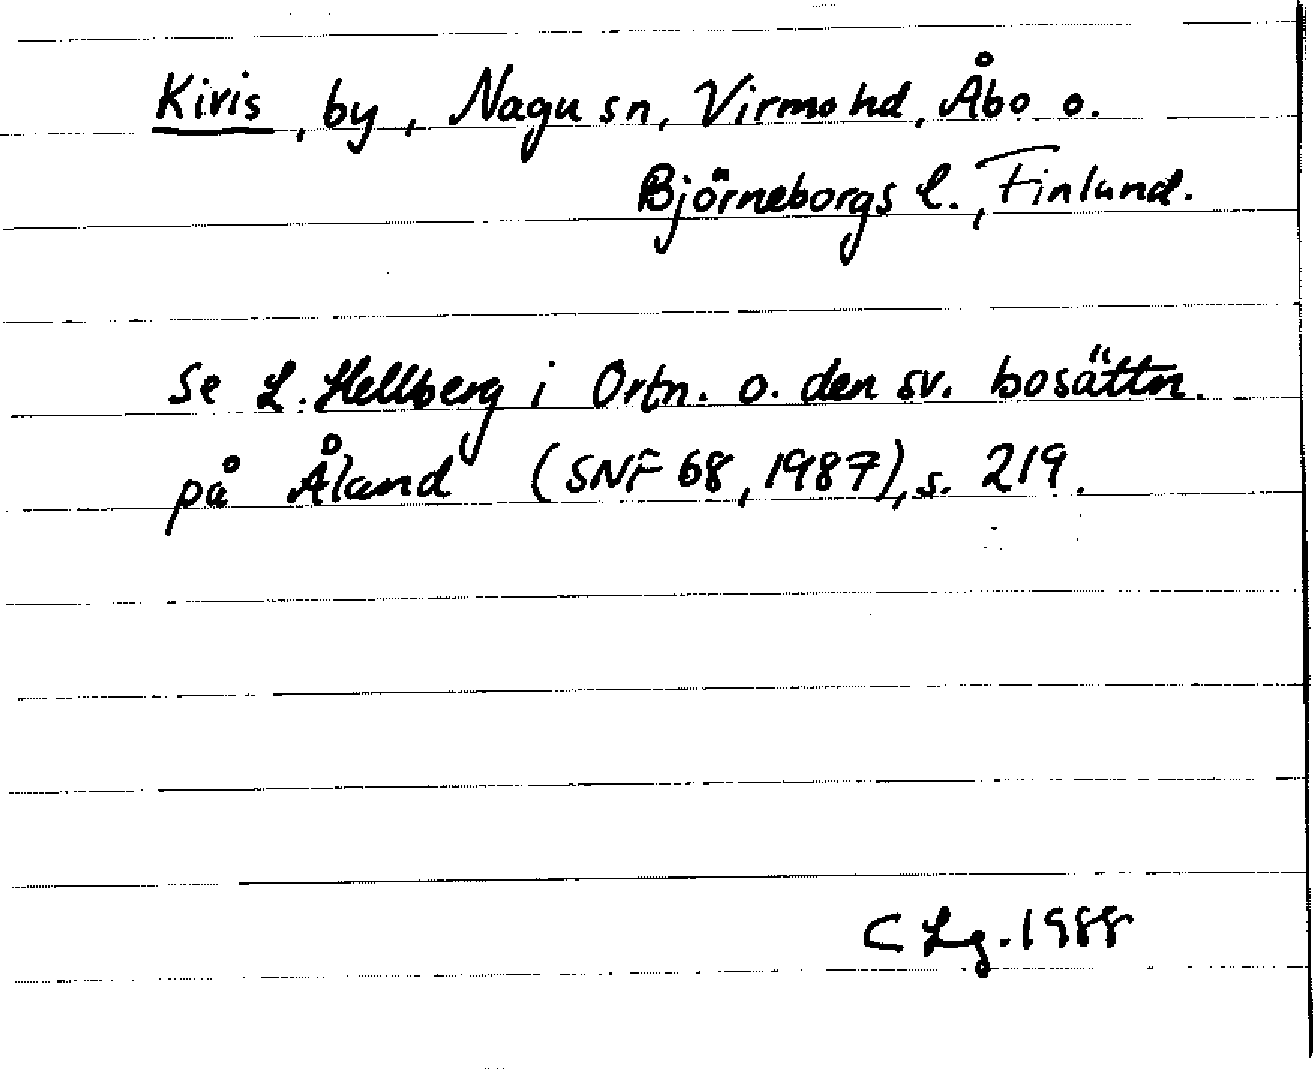 Kivis, by, Nagu sn, Virmo hd, Åbo o.
Björneborgs l., Finland.
Se L. Hellberg i Ortn. o. den sv. bosättn.
på Åland (SNF 68, 1987), s. 219.
C Lg. 1988